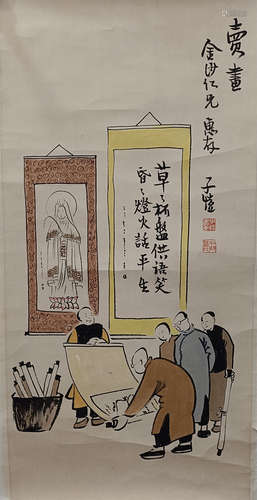 賣畫
金沙仁兄惠存
子愷
草草杯盤供語笑
昏昏燈火話平生